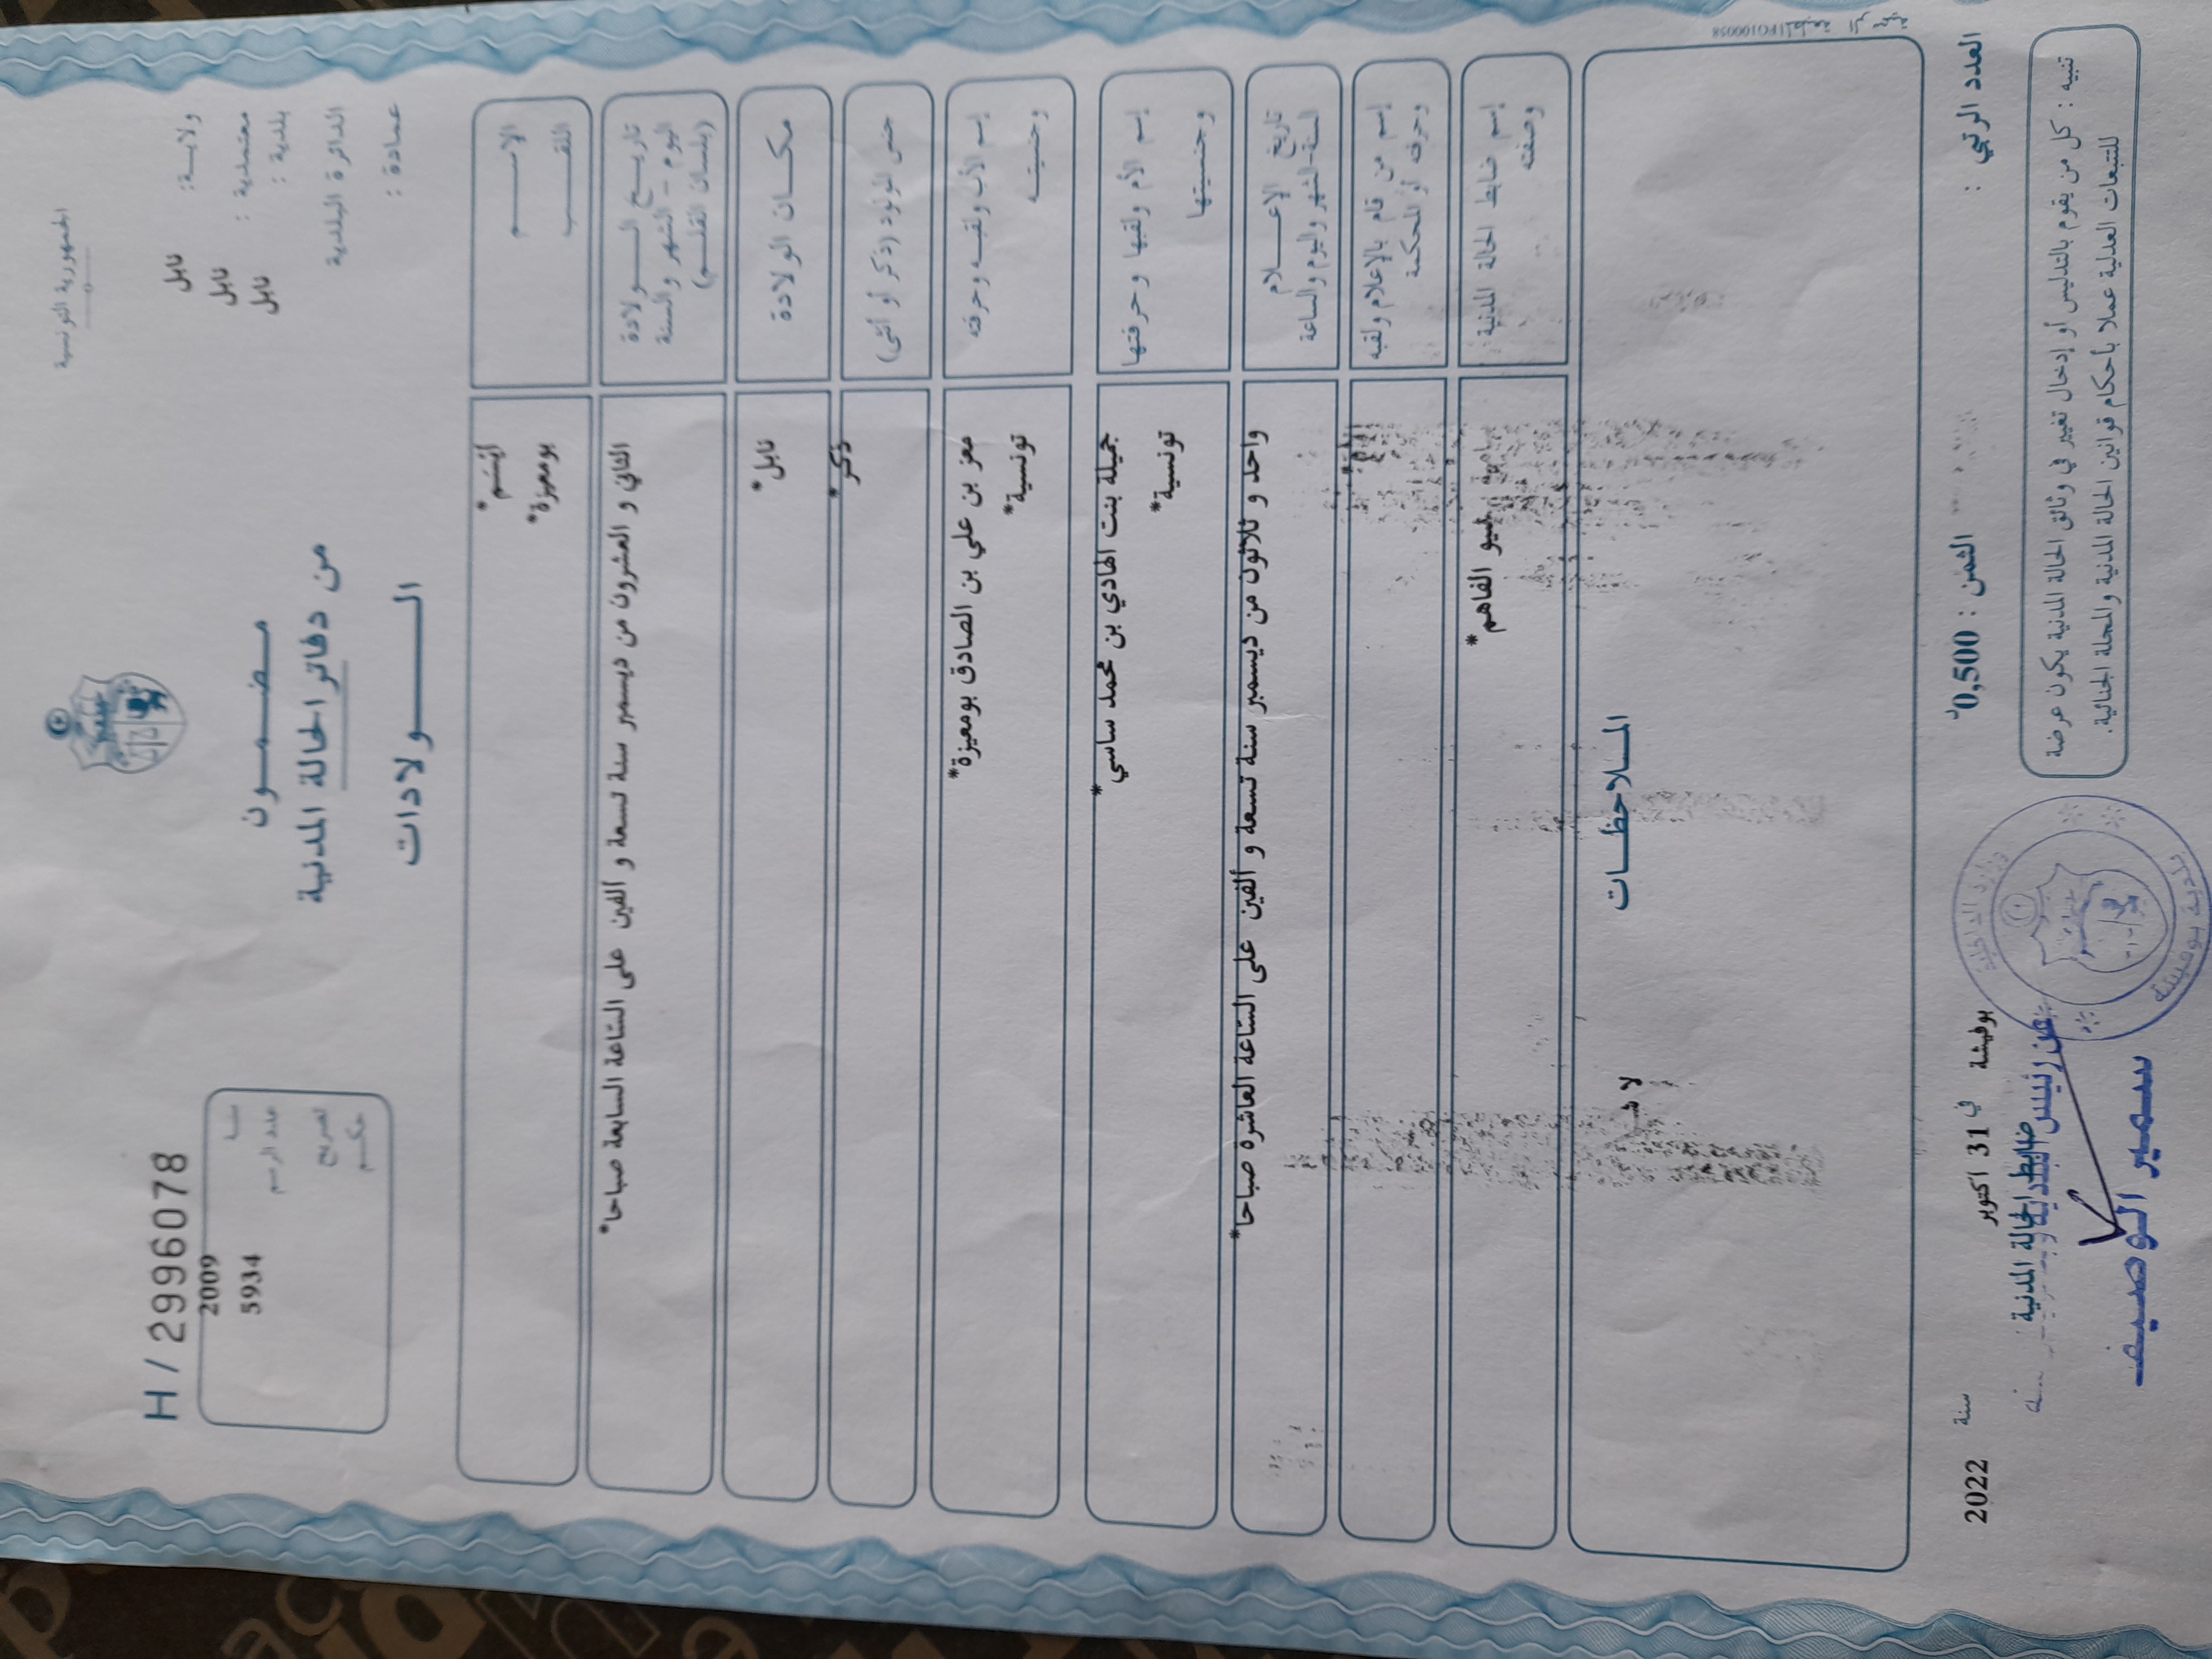 الجمهورية التونسية
ولاية: نابل
معتمدية : نابل
بلدية : نابل
الدائرة البلدية
عمادة :
مضمون
من دفاتر الحالة المدنية
الولادات
H / 2996078
سنة 2009
عدد الرسم 5934
تصريح
حكم
الاسم
اللقب
بومعيزة*
تاريخ الولادة
اليوم - الشهر والسنة
(بلسان القلم)
الثاني و العشرون من ديسمبر سنة تسعة و ألفين على الساعة السابعة صباحا*
مكان الولادة
نابل*
جنس المولود (ذكر أو أنثى)
ذكر*
إسم الأب ولقبه وحرفته
وجنسيته
معز بن علي بن الصادق بومعيزة*
تونسية*
إسم الأم ولقبها وحرفتها
وجنسيتها
جميلة بنت الهادي بن محمد ساسي*
تونسية*
تاريخ الإعلام
السنة-الشهر واليوم والساعة
واحد و ثلاثون من ديسمبر سنة تسعة و ألفين على الساعة العاشرة صباحا*
إسم من قام بالإعلام ولقبه
وحرفته أو المحكمة
إسم ضابط الحالة المدنية
وصفته
الفاهم*
الملاحظات
العدد الرتبي :
الثمن : 0,500د
بوفيشة في 31 اكتوبر سنة 2022
ضابط الحالة المدنية
عن رئيس البلدية
سمير الوصيف
وزارة الداخلية
بلدية بوفيشة
تنبيه : كل من يقوم بالتدليس أو إدخال تغيير في وثائق الحالة المدنية يكون عرضة
للتتبعات العدلية عملا بأحكام قوانين الحالة المدنية والمجلة الجنائية.